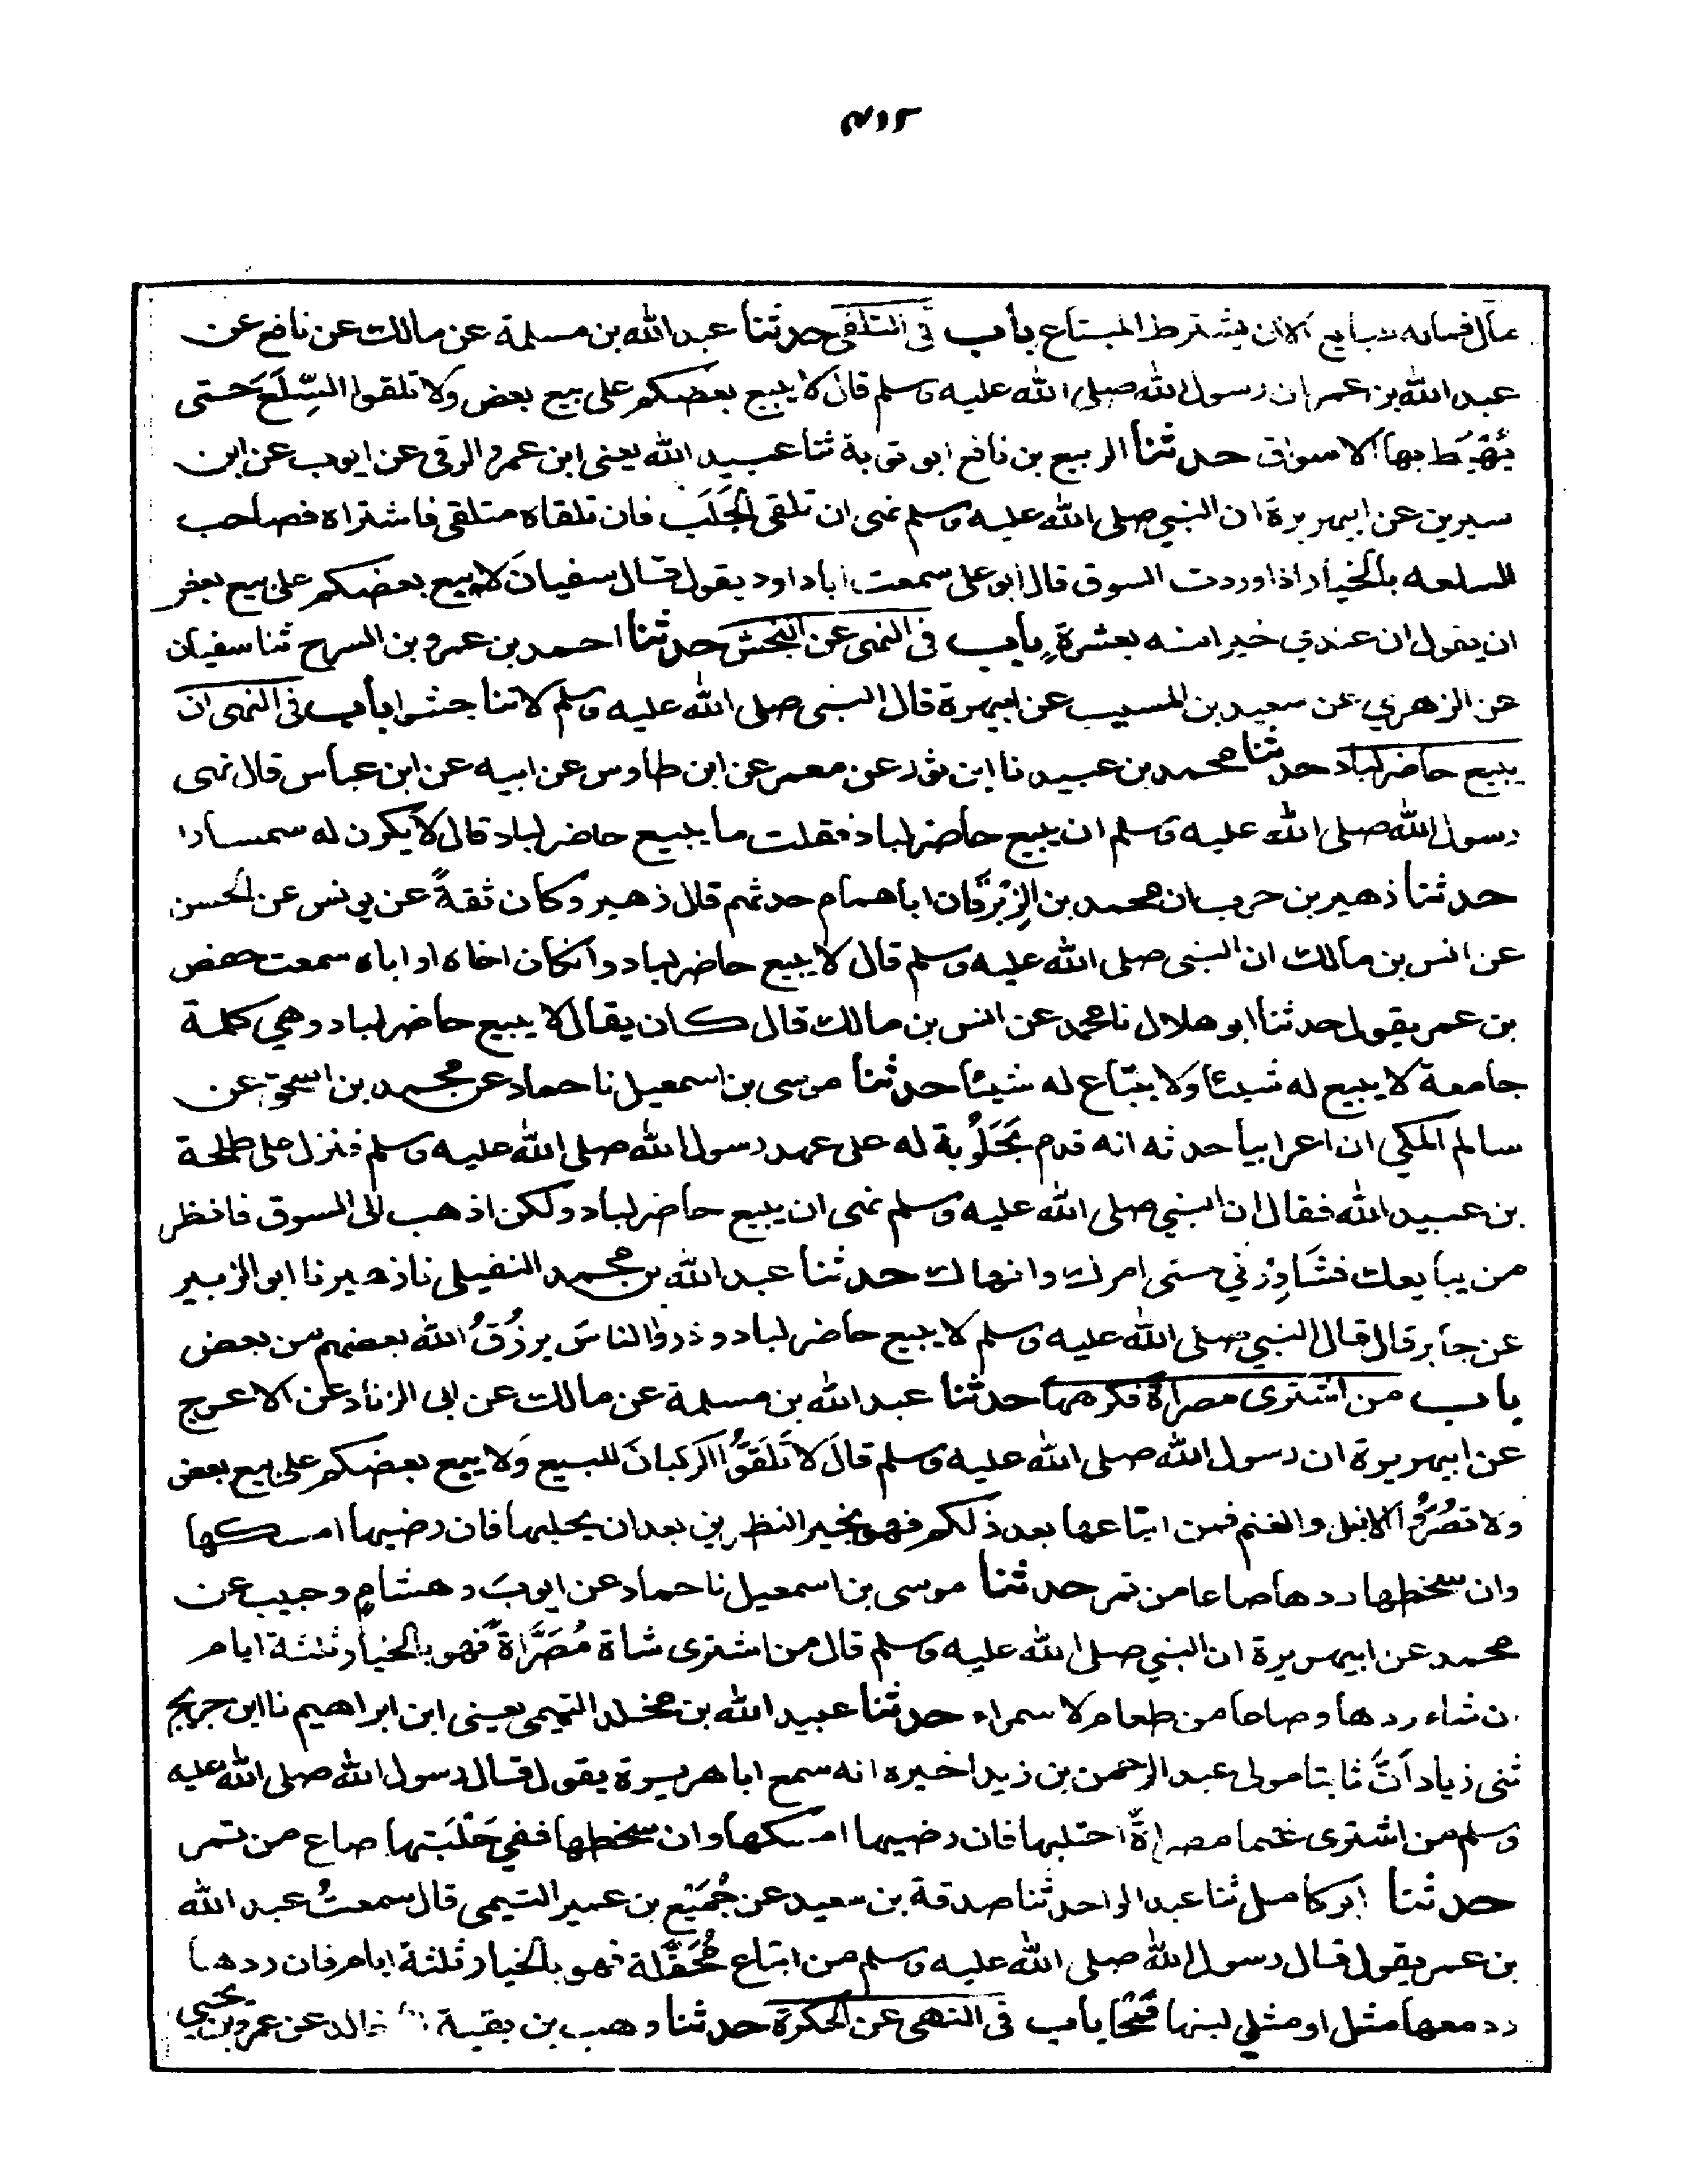 ٣١٢
مال فماله للبايع الا ان يشترط المبتاع باب في التلقي حدثنا عبد الله بن مسلمة عن مالك عن نافع عن
عبد الله بن عمر ان رسول الله صلى الله عليه وسلم قال لا يبيع بعضكم على بيع بعض ولا تلقوا السِّلَعَ حتى
يُهْبَطَ بها الاسواق حدثنا الربيع بن نافع ابو توبة ثنا عبيد الله يعني ابن عمرو الرقي عن ايوب عن ابن
سيرين عن ابي هريرة ان النبي صلى الله عليه وسلم نهى ان تلقى الجَلَب فان تلقاه متلقي فاشتراه فصاحب
السلعه بالخيار اذا وردت السوق قال ابو علي سمعت ابا داود يقول قال سفيان لا يبيع بعضكم على بيع بعض
ان يقول ان عندي خيرا منه بعشرةٍ باب في النهي عن النجش حدثنا احمد بن عمرو بن السرح ثنا سفيان
عن الزهري عن سعيد بن المسيب عن ابي هرة قال النبي صلى الله عليه وسلم لا تناجشوا باب في النهى ان
يبيع حاضر لباد حدثنا محمد بن عبيد نا ابن ثور عن معمر عن ابن طاوس عن ابيه عن ابن عباس قال نهى
رسول الله صلى الله عليه وسلم ان يبيع حاضر لباد فقلت ما يبيع حاضر لباد قال لا يكون له سمسارا
حدثنا زهير بن حرب ان محمد بن الزِبْرَقان ابا همام حدثهم قال زهير وكان ثقةً عن يونس عن الحسن
عن انس بن مالك ان النبي صلى الله عليه وسلم قال لا يبيع حاضر لباد وان كان اخاه او اباه سمعت حفص
بن عمر يقول حدثنا ابو هلال نا محمد عن انس بن مالك قال كان يقال لا يبيع حاضر لباد وهي كلمة
جامعة لا يبيع له شيئا ولا يبتاع له شيئا حدثنا موسى بن اسمعيل نا حماد عن محمد بن اسحق عن
سالم المكي ان اعرابيا حدثه انه قدم بحَلُوبة له على عهد رسول الله صلى الله عليه وسلم فنزل على طلحة
بن عبيد الله فقال ان النبي صلى الله عليه وسلم نهى ان يبيع حاضر لباد ولكن اذهب الى السوق فانظر
من يبايعك فشَاوِرْني حتى امرك وانهاك حدثنا عبد الله بن محمد النفيلي نا زهير نا ابو الزبير
عن جابر قال قال النبي صلى الله عليه وسلم لا يبيع حاضر لباد وذروا الناسَ يرزُقُ الله بعضهم من بعض
باب من اشترى مصراة فكرهها حدثنا عبد الله بن مسلمة عن مالك عن ابى الزناد عن الاعرج
عن ابي هريرة ان رسول الله صلى الله عليه وسلم قال لا تَلَقَّوُا الركبانَ للبيع ولا يبيع بعضكم على بيع بعض
ولا تصُرُّوا الابل والغنم فمن ابتاعها بعد ذلكم فهو بخير النظرين بعد ان يحلبها فان رضيها امسكها
وان سخطها ردها صاعا من تمر حدثنا موسى بن اسمعيل نا حماد عن ايوبَ وهشامٍ وحبيب عن
محمد عن ابي هريرة ان النبي صلى الله عليه وسلم قال من اشترى شاة مُصَرَّاةً فهو بالخيار ثلثة ايام
ان شاء ردها وصاعا من طعام لا سمراء حدثنا عبيد الله بن مخلد التميمي يعني ابن ابراهيم نا ابن جريج
ثني زياد أنَّ ثابتا مولى عبد الرحمن بن زيد اخبره انه سمع ابا هريرة يقول قال رسول الله صلى الله عليه
وسلم من اشترى غنما مصراةً احتلبها فان رضيها امسكها وان سخطها ففي حَلْبَتِها صاع من تمر
حدثنا ابو كامل ثنا عبد الواحد ثنا صدقة بن سعيد عن جُمَيْع بن عمير التيمي قال سمعتُ عبد الله
بن عمر يقول قال رسول الله صلى الله عليه وسلم من ابتاع مُحَفَّلة فهو بالخيار ثلثة ايام فان ردها
رد معها مثل او مثلي لبنها قمحًا باب في النهي عن الحكرة حدثنا وهب بن بقية خالد عن عمرو بن يحيى